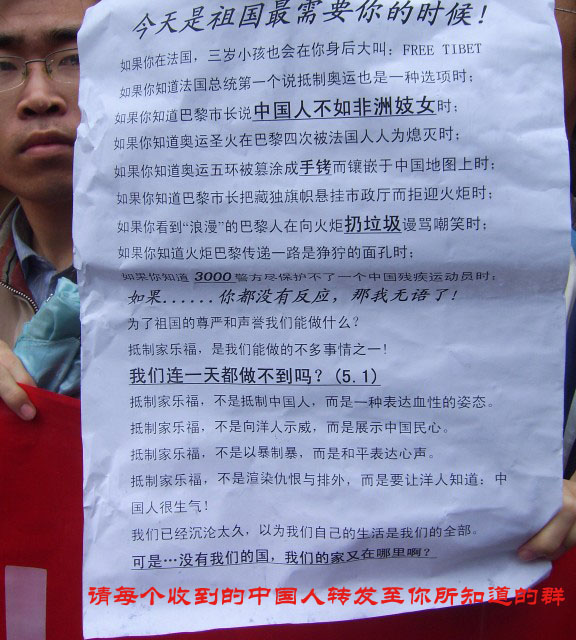 今天是祖国最需要你的时候！
如果你在法国，三岁小孩也会在你身后大叫：FREE TIBET
如果你知道法国总统第一个说抵制奥运也是一种选项时；
如果你知道巴黎市长说中国人不如非洲妓女时；
如果你知道奥运圣火在巴黎四次被法国人人为熄灭时；
如果你知道奥运五环被篡涂成手铐而镶嵌于中国地图上时；
如果你知道巴黎市长把藏独旗帜悬挂市政厅而拒迎火炬时；
如果你看到“浪漫”的巴黎人在向火炬扔垃圾谩骂嘲笑时；
如果你知道火炬巴黎传递一路是狰狞的面孔时；
如果你知道 3000警方尽保护不了一个中国残疾运动员时；
如果......你都没有反应，那我无语了！
为了祖国的尊严和声誉我们能做什么？
抵制家乐福，是我们能做的不多事情之一！
我们连一天都做不到吗？(5.1)
抵制家乐福，不是抵制中国人，而是一种表达血性的姿态。
抵制家乐福，不是向洋人示威，而是展示中国民心。
抵制家乐福，不是以暴制暴，而是和平表达心声。
抵制家乐福，不是渲染仇恨与排外，而是要让洋人知道：中
国人很生气！
我们已经沉沦太久，以为我们自己的生活是我们的全部。
可是…没有我们的国，我们的家又在哪里啊？
请每个收到的中国人转发至你所知道的群